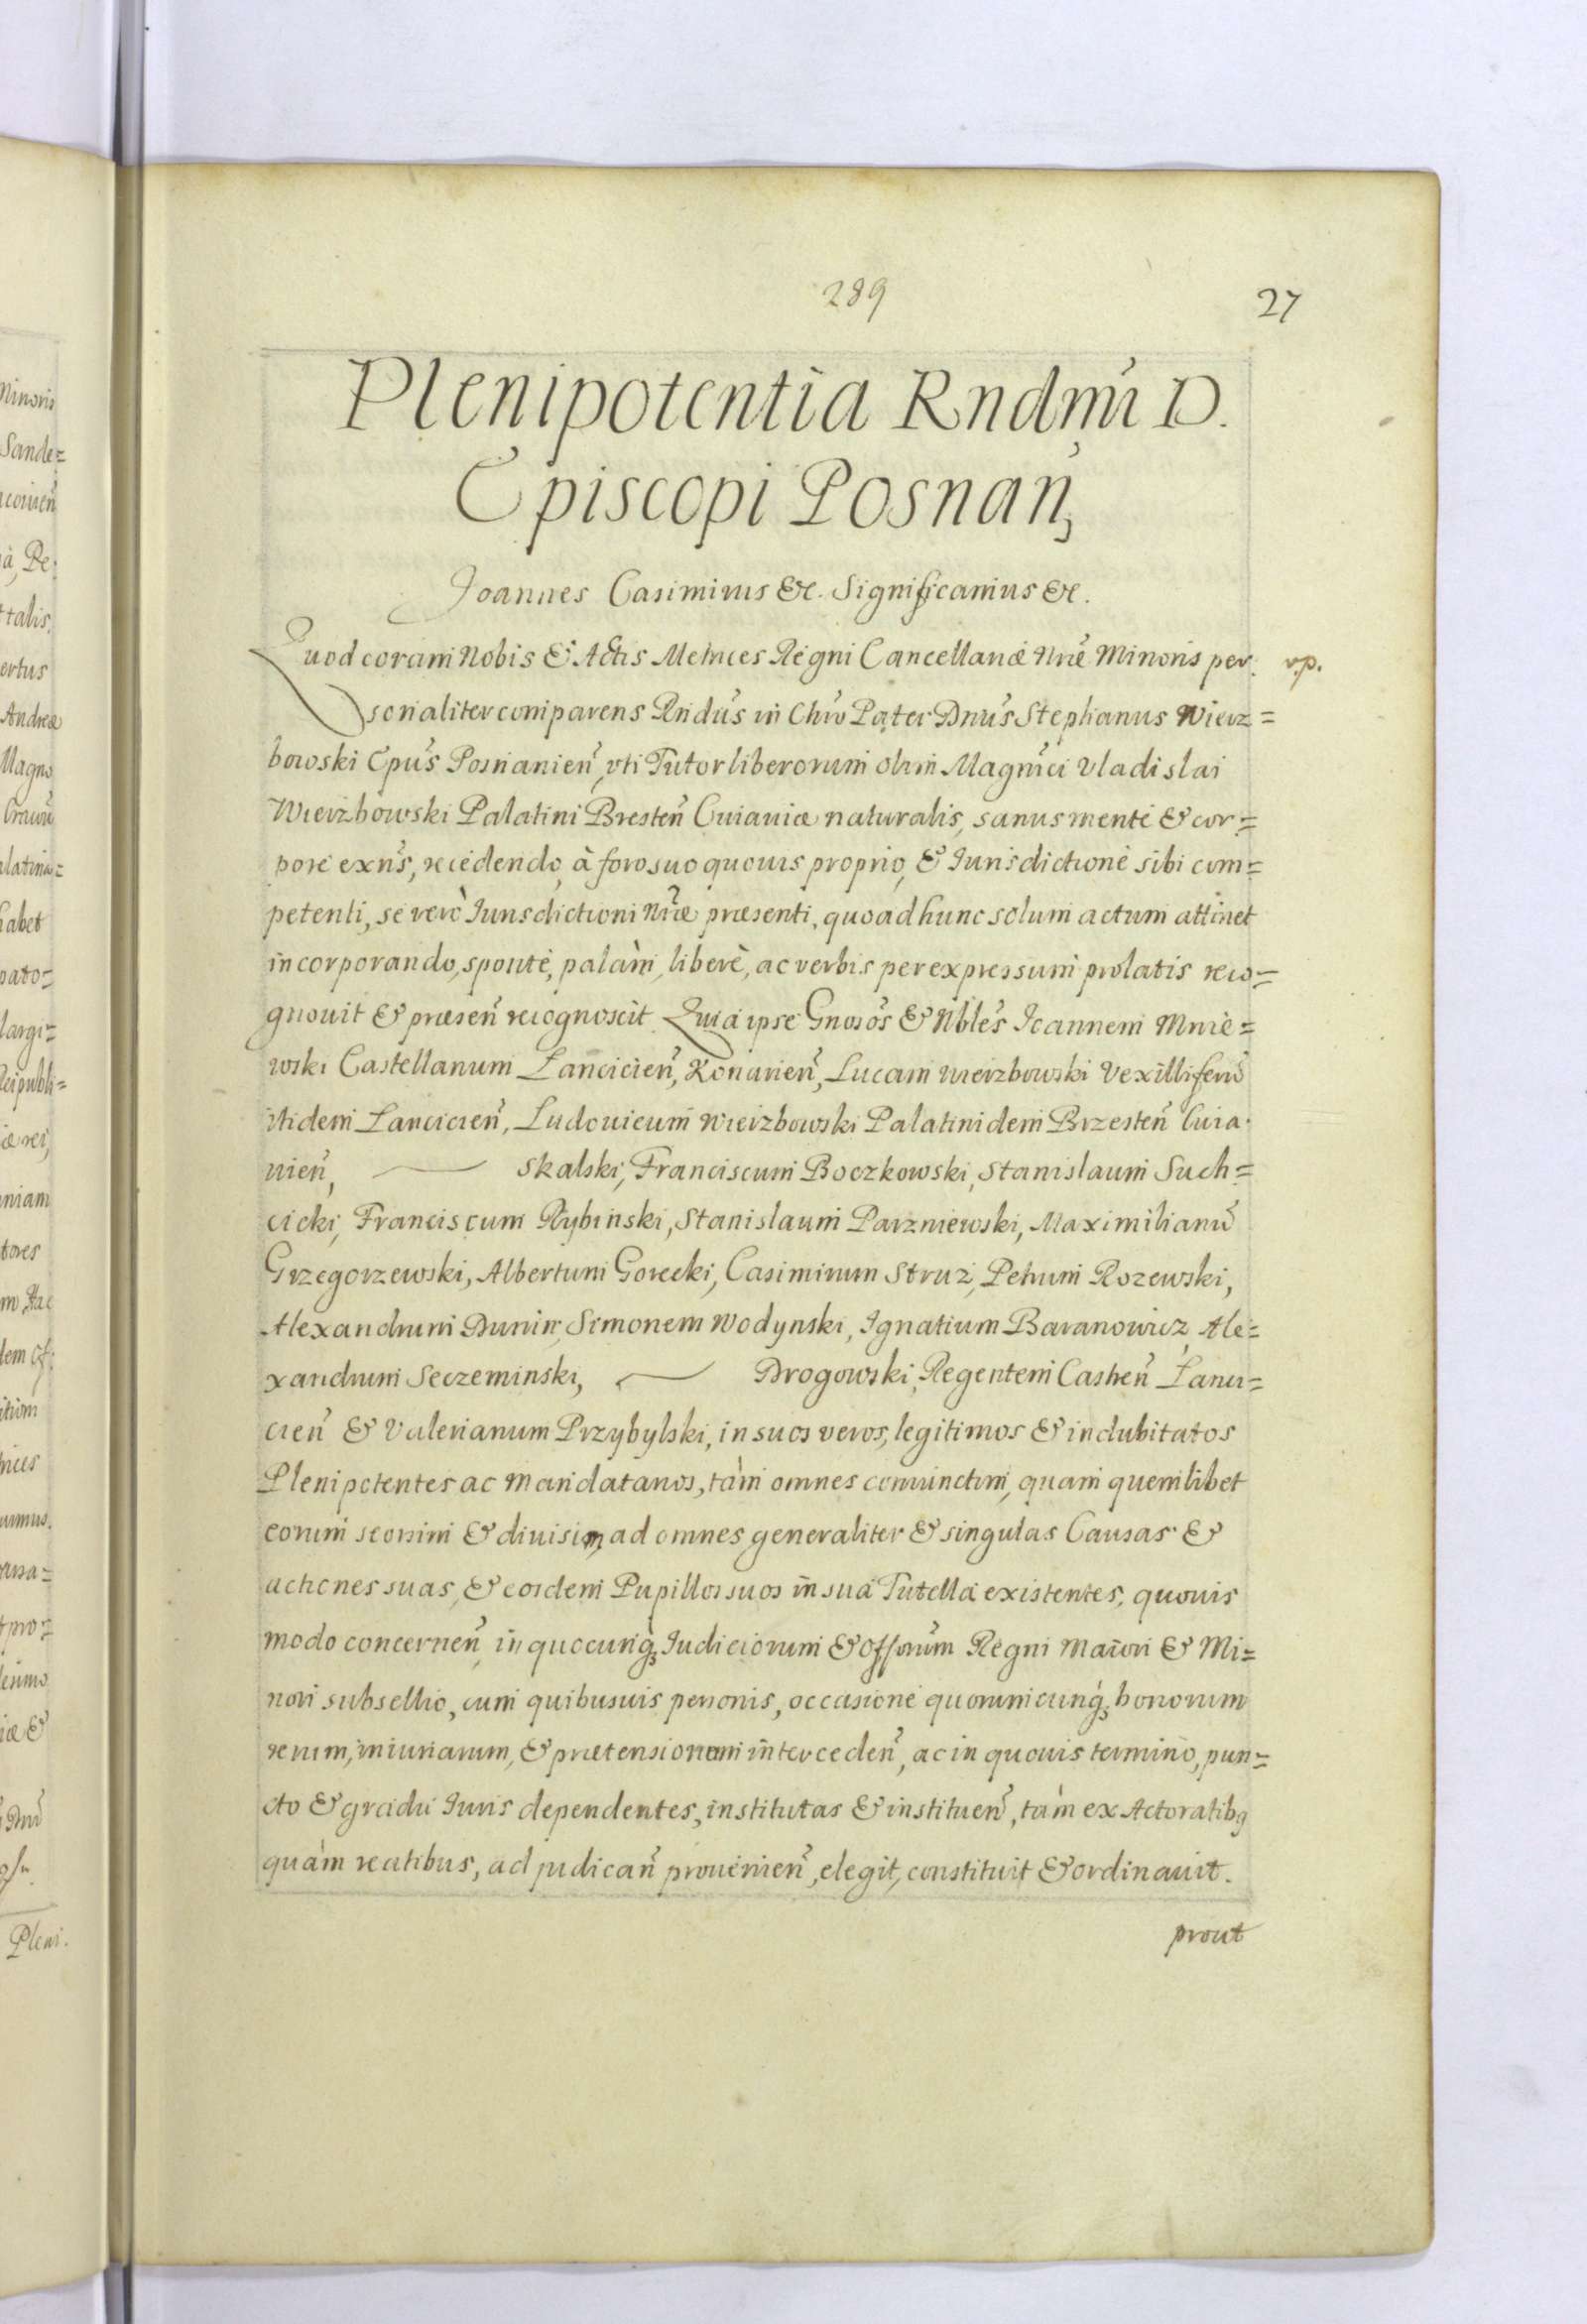 289
27
Plenipotentia Rndmi D.
Episcopi Posnan̄,
Joannes Casimirus &c. Significamus &c.
Quod coram Nobis & Actis Metrices Regni Cancellariæ Nræ Minoris per: vp.
sonaliter comparens Rndus in Chro Pater Dnus Stephanus Wierz=
bowski Epus Posnanien̄, vti Tutor liberorum olim Magnici Vladislai
Wierzbowski Palatini Bresten̄ Cuiauiæ naturalis, sanus mente & cor=
pore exns, recedendo à foro suo quouis proprio, & Iurisdictione sibi com=
petenti, se verò Iurisdictioni Nræ præsenti, quoad hunc solum actum attinet
incorporando, sponte, palàm, liberè, ac verbis per expressum prolatis reco=
gnouit & præsen̄ recognoscit. Quia ipse Gnosos & Nbles Ioannem Mnie=
wski Castellanum Lancicien̄, Konarien̄, Lucam Wierzbowski Vexilliferū
itidem Lancicien̄, Ludouicum Wierzbowski Palatinidem Brzesten̄ Cuia.
uien̄, — Skalski, Franciscum Boczkowski, Stanislaum Such=
cicki, Franciscum Rybinski, Stanislaum Parzniewski, Maximilianū
Grzegorzewski, Albertum Gorecki, Casimirum Struż, Petrum Rozewski,
Alexandrum Dunin, Simonem Wodynski, Ignatium Baranowicz, Ale=
xandrum Seczeminski, — Drogowski, Regentem Castren̄ Lanci=
cien̄ & Valerianum Przybylski, in suos veros, legitimos & indubitatos
Plenipotentes ac Mandatarios, tàm omnes coniunctim, quam quemlibet
eorum seorsim & diuisim, ad omnes generaliter & singulas Causas &
actiones suas, & eosdem Pupillos suos in sua Tutella existentes, quouis
modo concernen̄, in quocunq; Iudiciorum & Offorum Regni Maiori & Mi=
nori subsellio, cum quibusuis personis, occasione quorumcunq; bonorum
rerum, iniuriarum, & prætensionum interceden̄, ac in quouis termino, pun=
cto & gradu Iuris dependentes, institutas & instituen̄, tàm ex Actoratibq
quàm reatibus, adjudican̄ prouenien̄, elegit, constituit & ordinauit.
prout